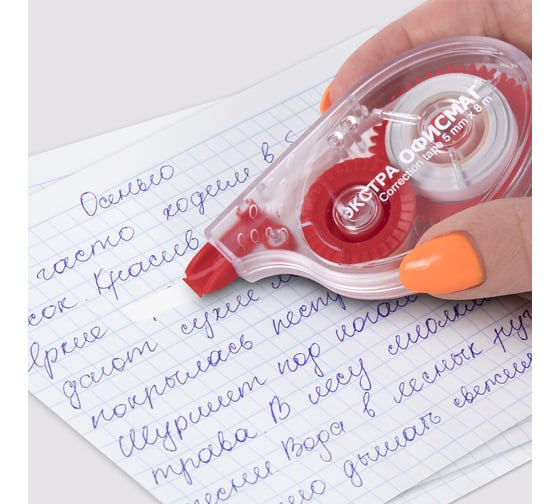 ЭКСТРА ОФИСМАГ
Correction tape 5 mm x 8 m
Осенью
часто ходили в
сок. Красив
яркие
дают сухие
покрылась пестр
Шуршит под ногами
трава. В лесу смолкли
песни Вода в лесных
дышать свежим